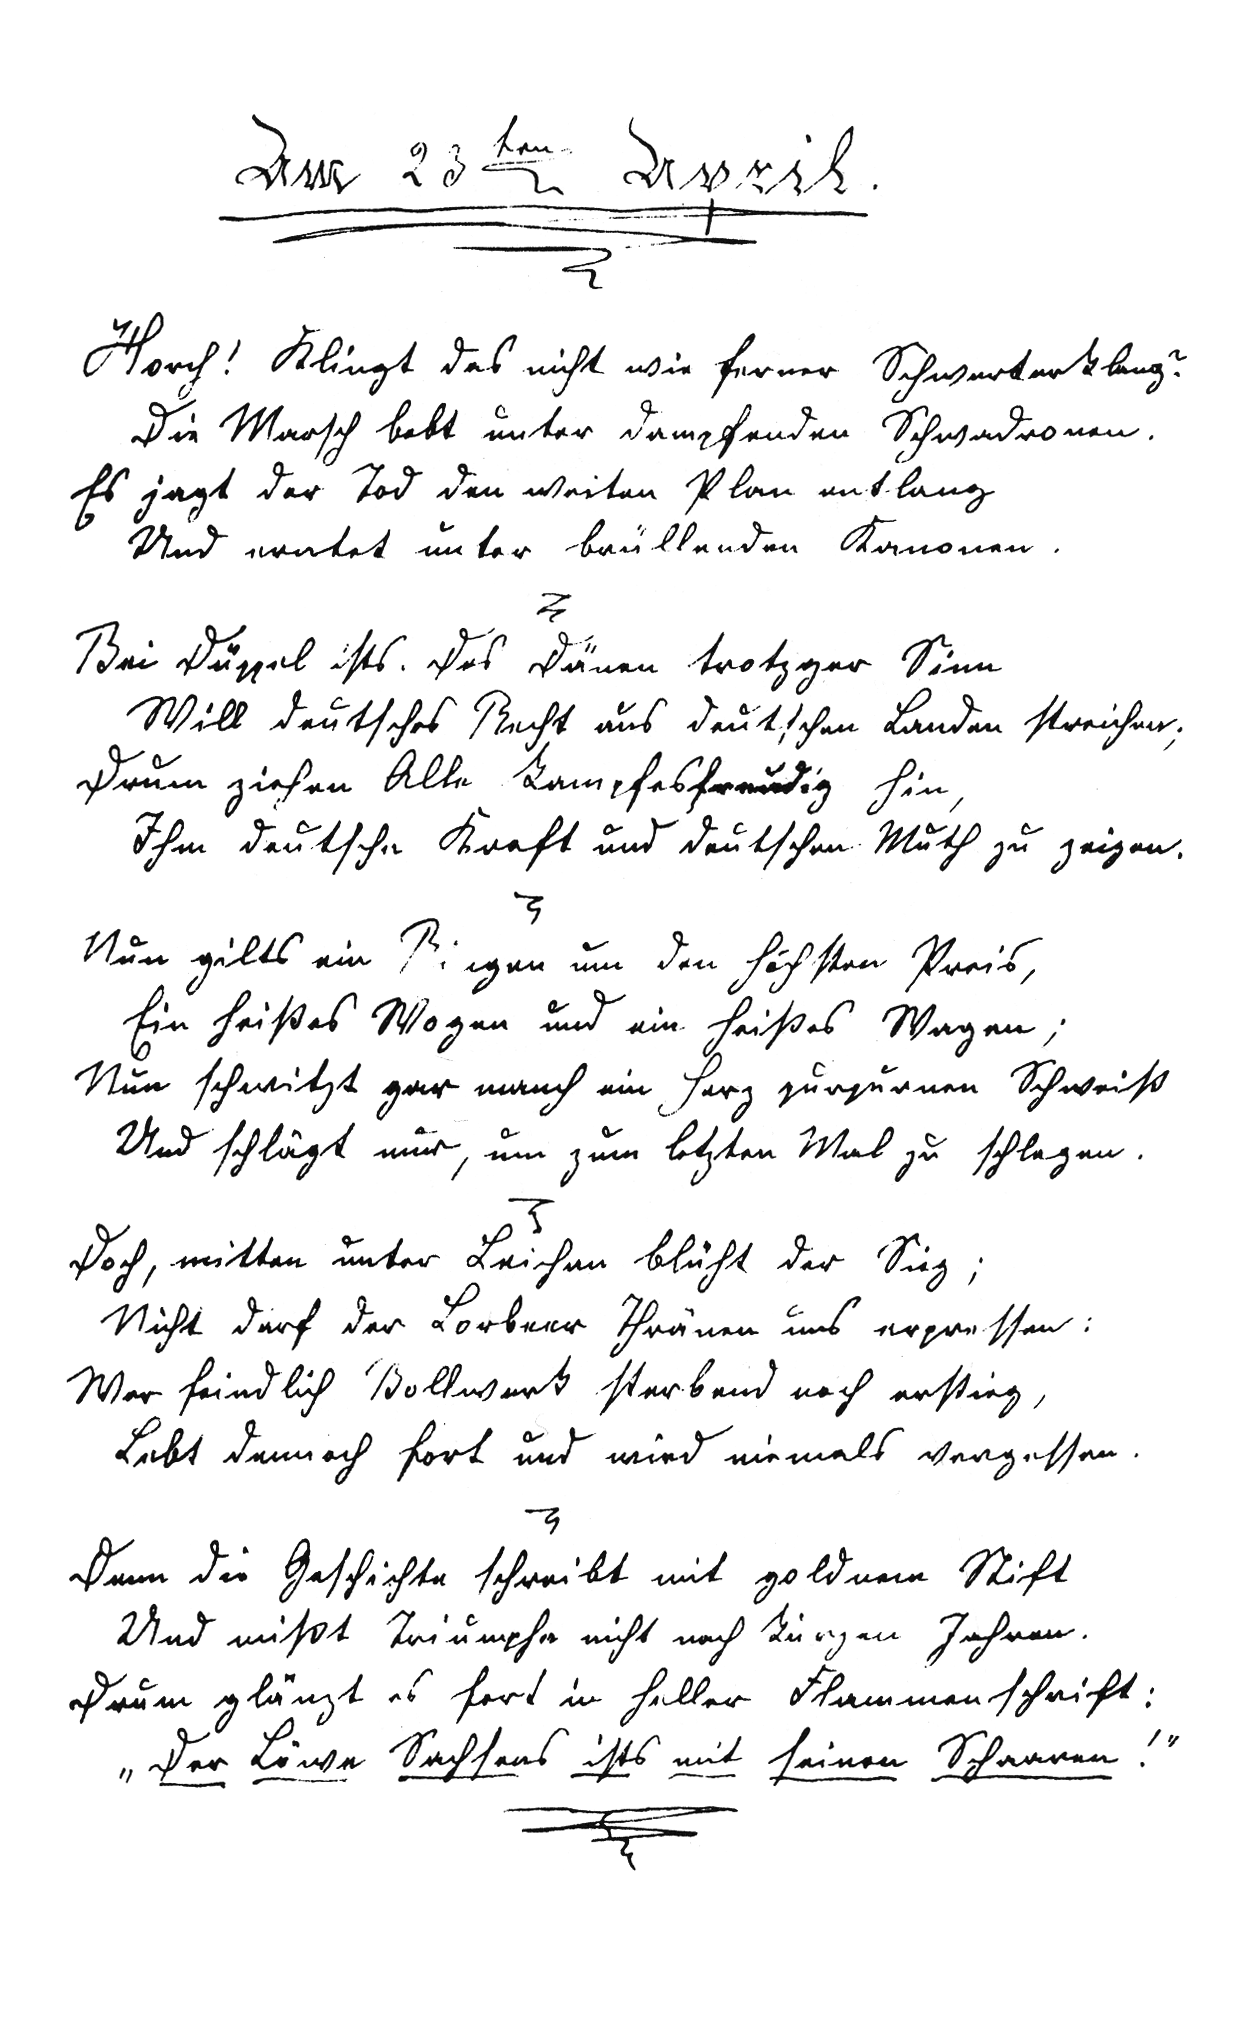 Am 23ten April.
Horch! Klingt das nicht wie ferner Schwerterklang?
Die Marsch bebt unter dampfenden Schwadronen.
Es jagt der Tod den weiten Plan entlang
Und erntet unter brüllenden Kanonen.
Bei Düppel ists. Des Dänen trotzger Sinn
Will deutsches Recht aus deutschen Landen streichen;
Drum ziehen Alle kampfesfreudig hin,
Ihm deutsche Kraft und deutschen Muth zu zeigen.
Nun gilts ein Ringen um den höchsten Preis,
Ein heißes Wogen und ein heißes Wagen;
Nun schwitzt gar manch ein Herz purpurnen Schweiß
Und schlägt nur, um zum letzten Mal zu schlagen.
Doch, mitten unter Leichen blüht der Sieg;
Nicht darf der Lorbeer Thränen uns erpressen:
Wer feindlich Bollwerk sterbend noch erstieg,
Lebt dennoch fort und wird niemals vergessen.
Denn die Geschichte schreibt mit goldnem Stift
Und mißt Triumphe nicht nach kurzen Jahren.
Drum glänzt es fort in heller Flammenschrift:
„Der Löwe Sachsens ists mit seinen Schaaren!"